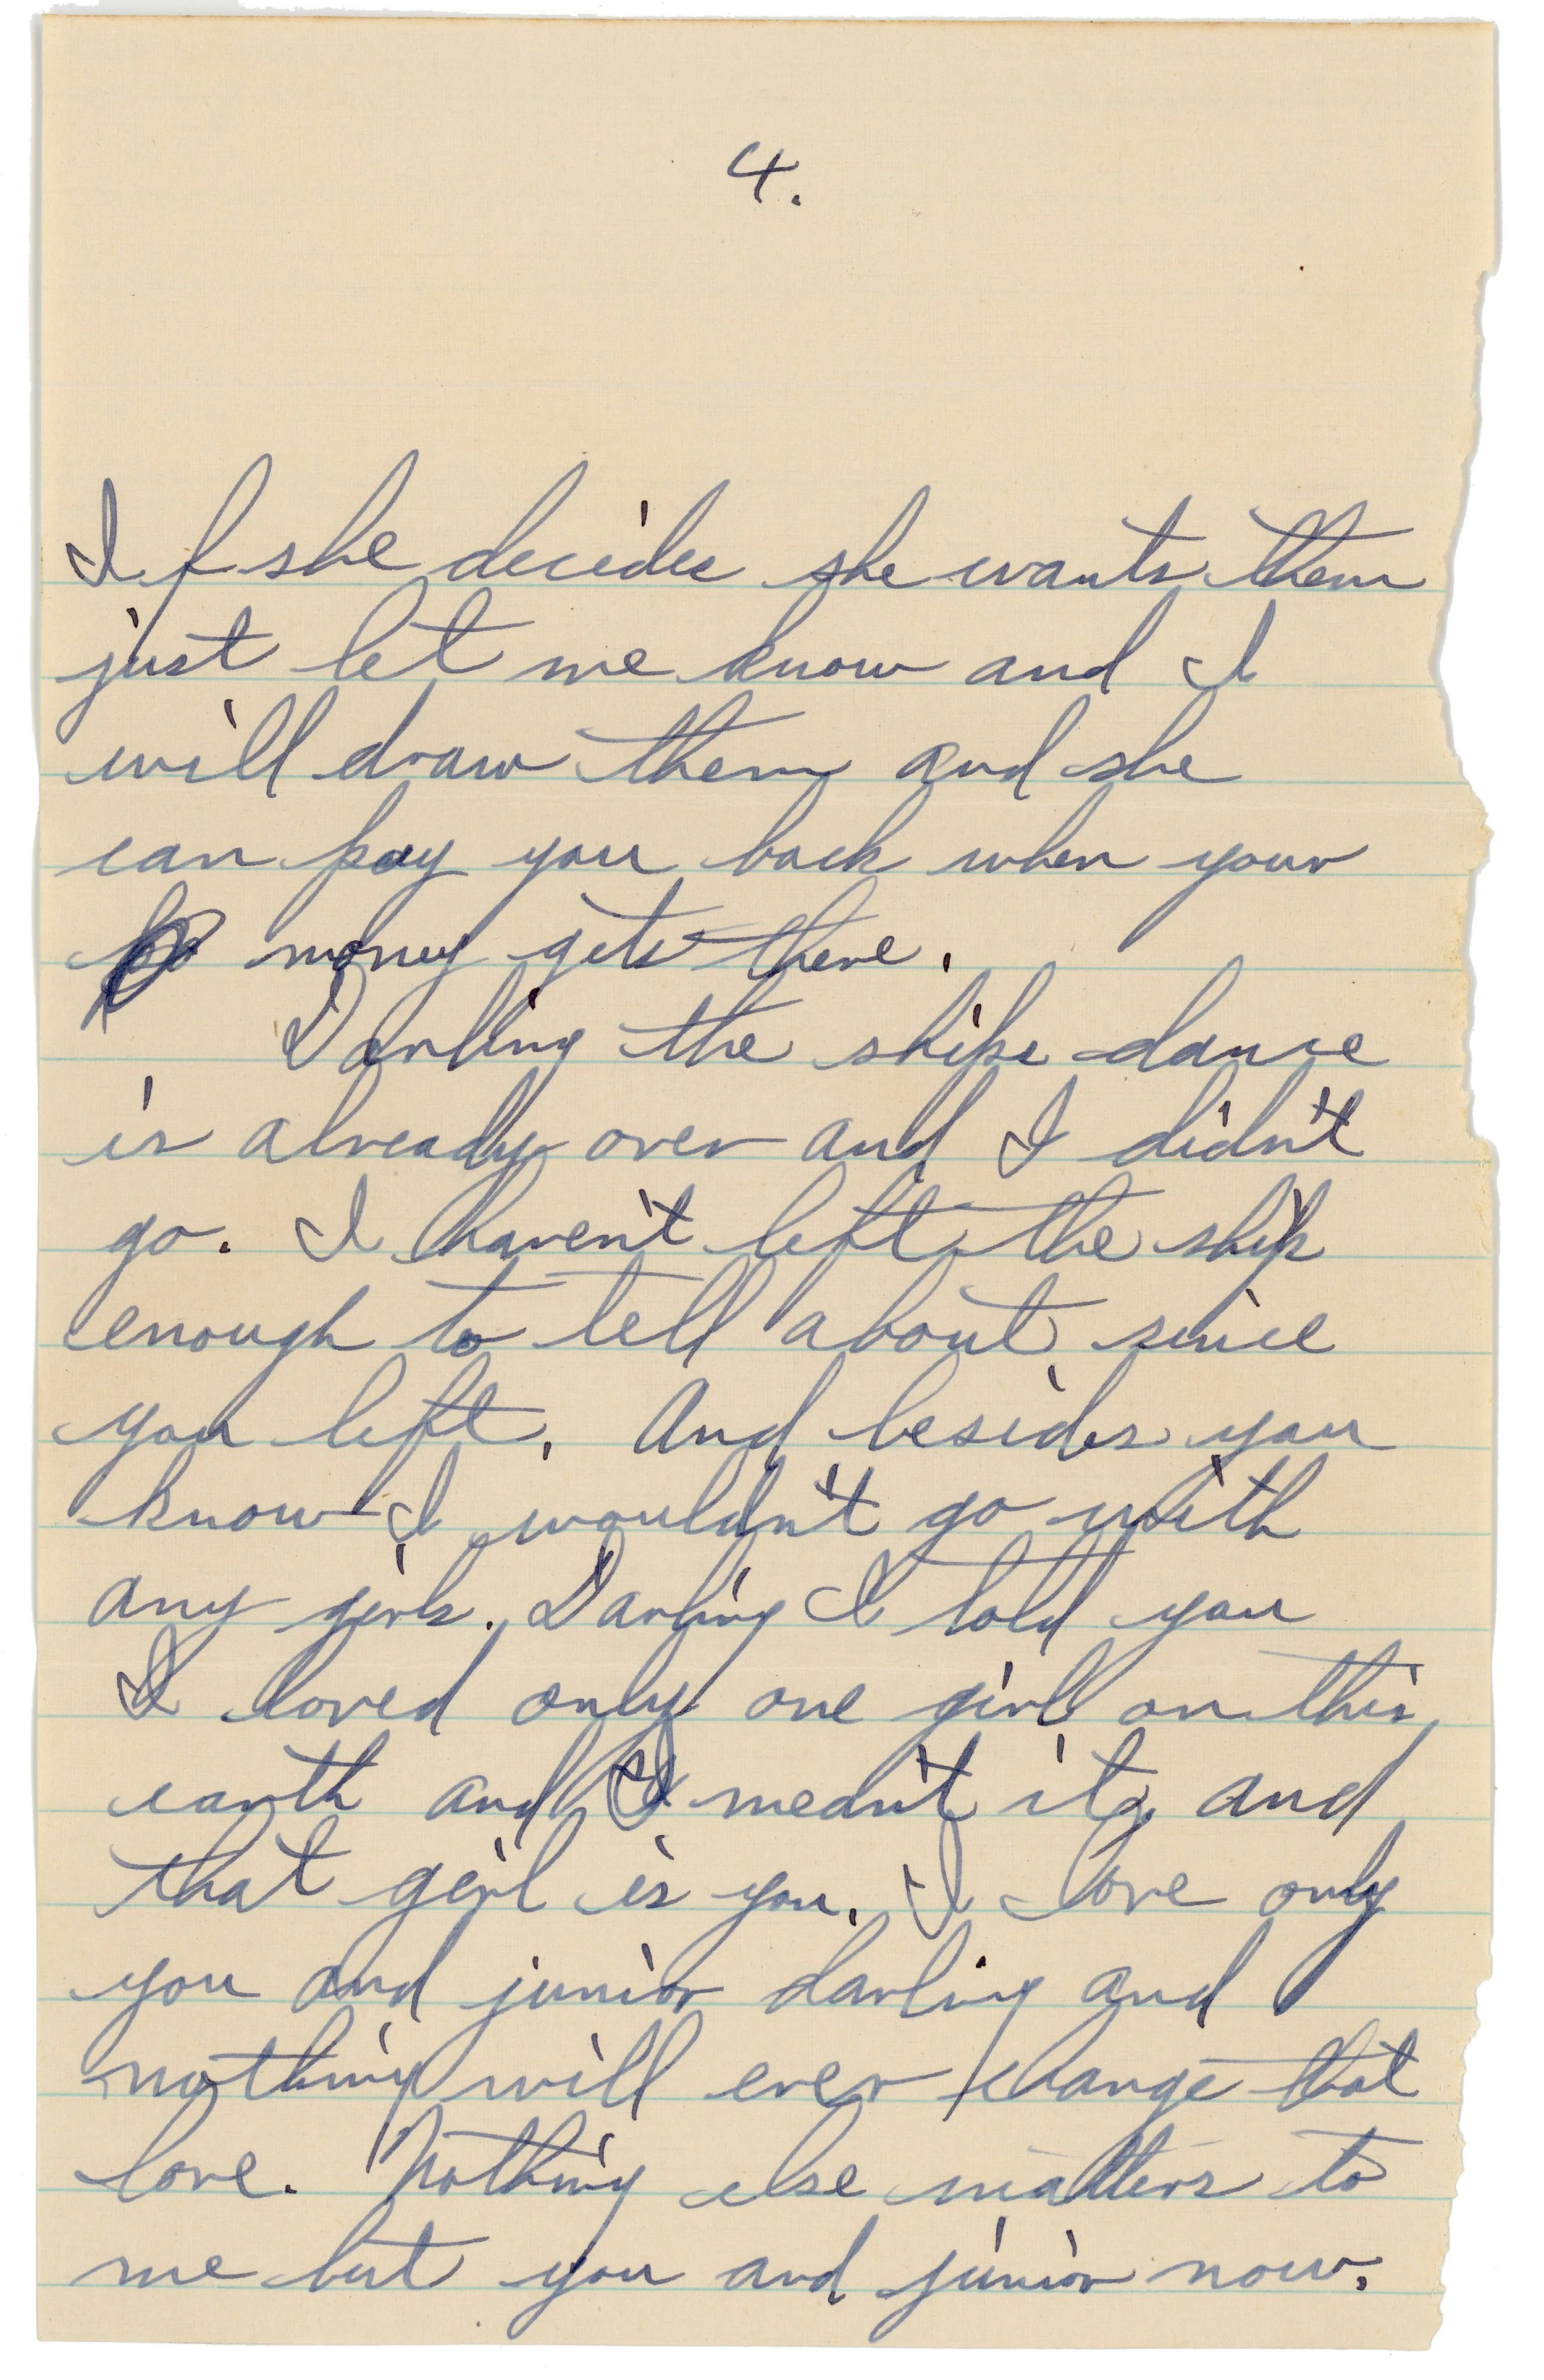 4.
If she decides she wants them
just let me know and I
will draw them and she
can pay you back when your
money gets there.
Darling the ships dance
is already over and I didn't
go. I haven't left the ship
enough to tell about since
you left. And besides you
know I wouldn't go with
any girls. Darling I told you
I loved only one girl on this
earth and I mean't it, and
that girl is you. I love only
you and junior darling and
nothing will ever change that
love. Nothing else matters to
me but you and junior now.